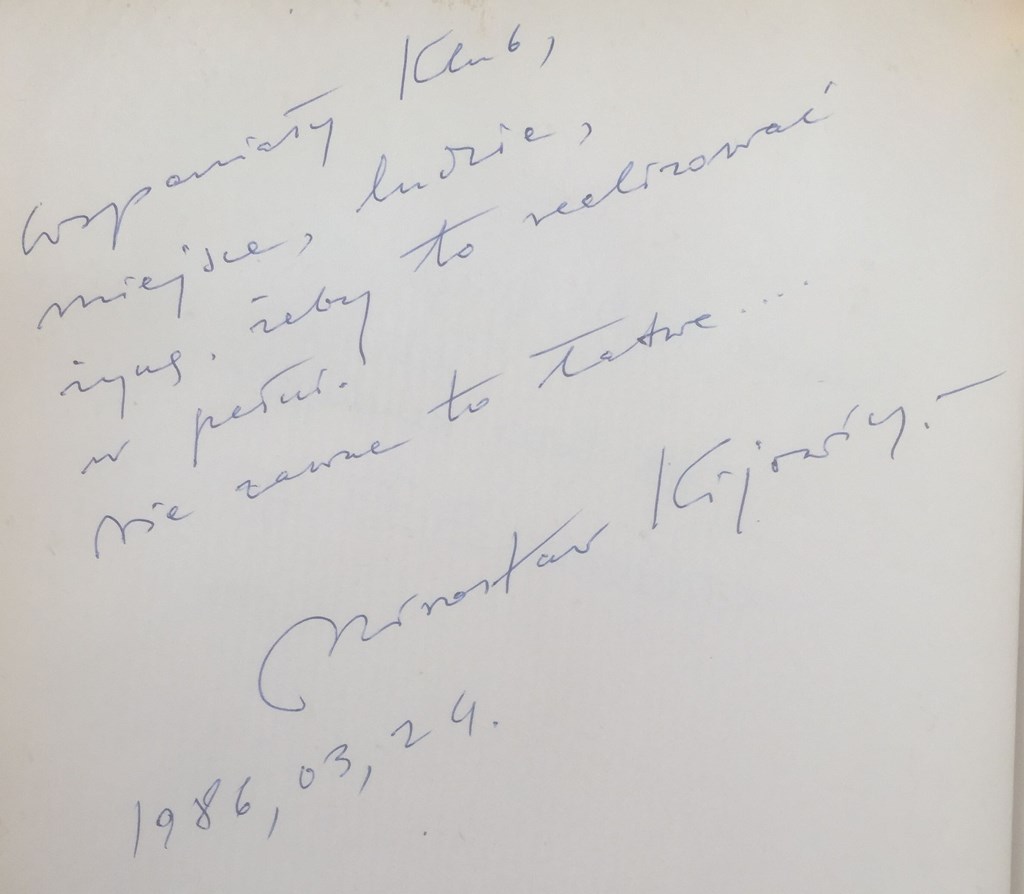 Wspaniały Klub,
miejsce, ludzie,
żeby to realizować
w pełni.
nie zawsze to łatwe....
Mirosław
1986,03,24.